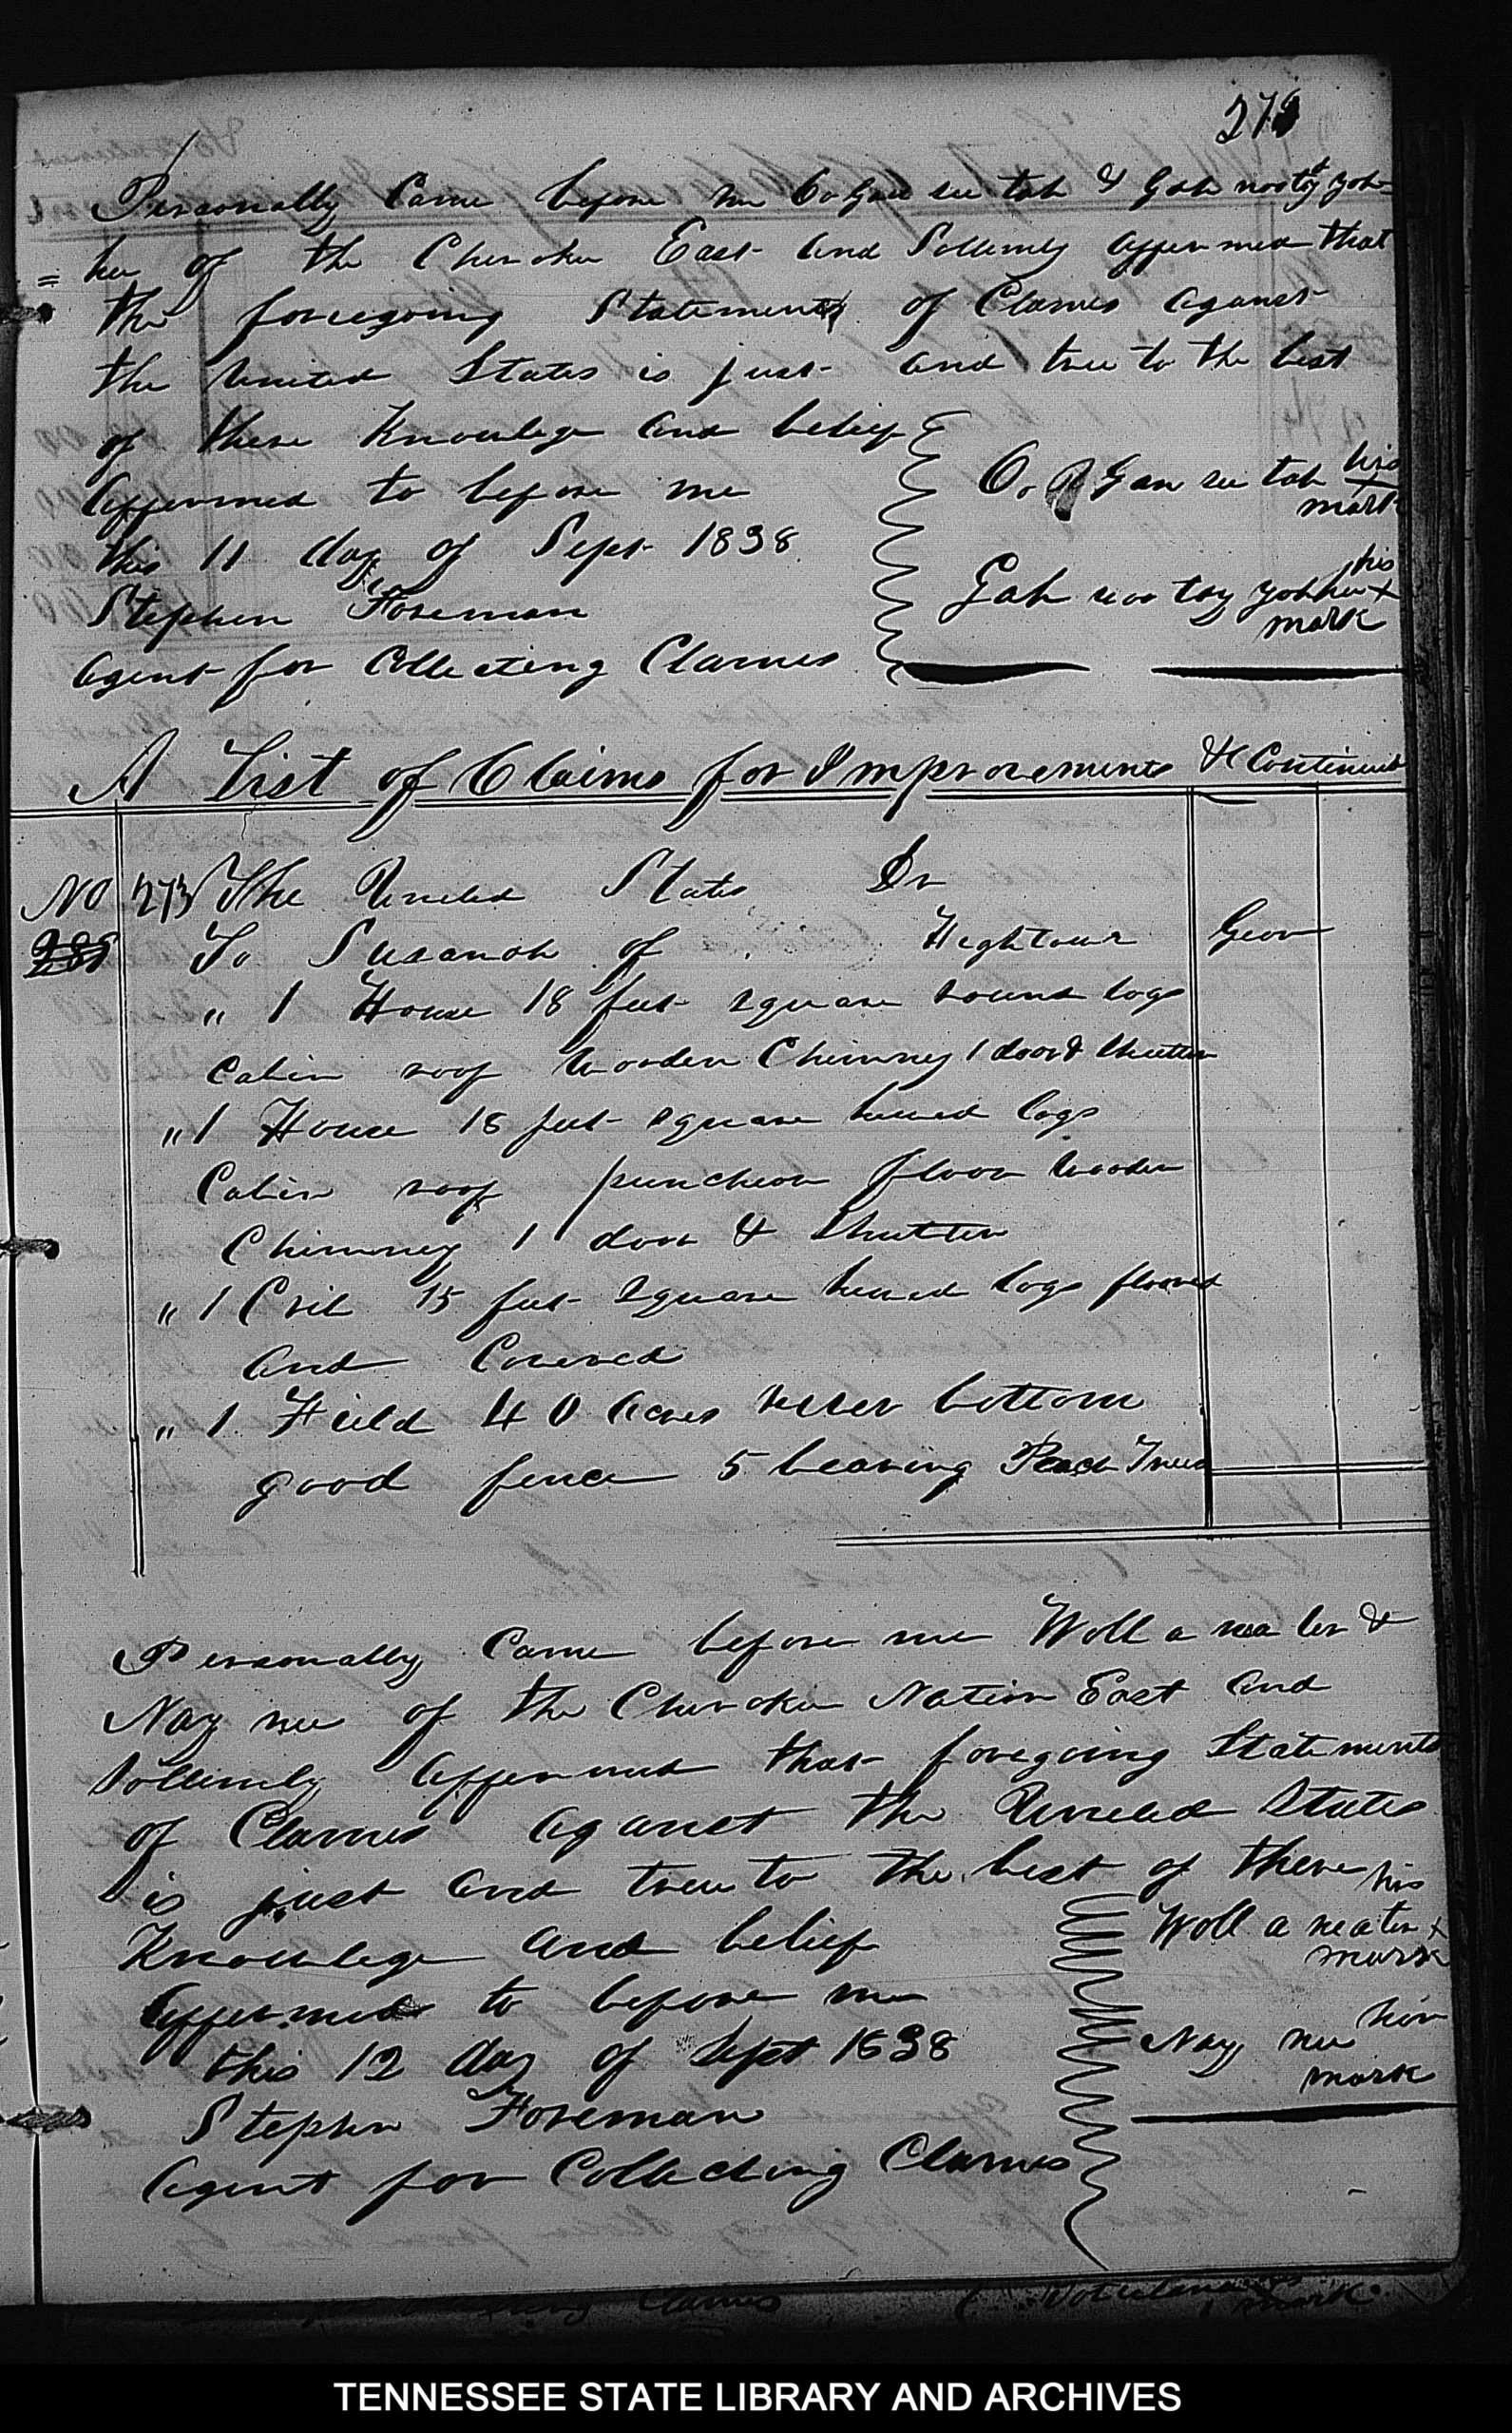 Personally Came before me & Gah
= hee of the Cherokee East and Sollemly affermed that
the foregoing Statements of Clames aganst
the United States is just and true to the best
of there Knowlege and belief
affermed to before me
this 11 day of Sept 1838
Stephen Foreman
agent for Collecting Clames
Gan see tah his
x
mark
Gah noo tay yoh hee his
x
mark
A List of Claims for Improvements &c Continued
No 273 The United States Dr
To Susanah of Hightour Geor
" 1 House 18 feet square round logs
Cabin roof wooden Chimney 1 door & Shutter
" 1 House 18 feet square hewed logs
Cabin roof puncheon floor wooden
Chimney 1 door & Shutter
" 1 Crib 15 feet Square hewed logs floored
and Covered
" 1 Field 40 acres river bottom
good fence 5 bearing Peach Trees
Personally Came before me Woll a &
Nay nee of the Cherokee Nation East and
Sollemly affermed that foregoing Statements
of Clames aganst the United States
is just and true to the best of there
Knowlege and belief
affermed to before me
this 12 day of Sept 1838
Stephen Foreman
agent for Collecting Clames
his
Woll a x
mark
Nay nee
mark
Clames
mark
TENNESSEE STATE LIBRARY AND ARCHIVES